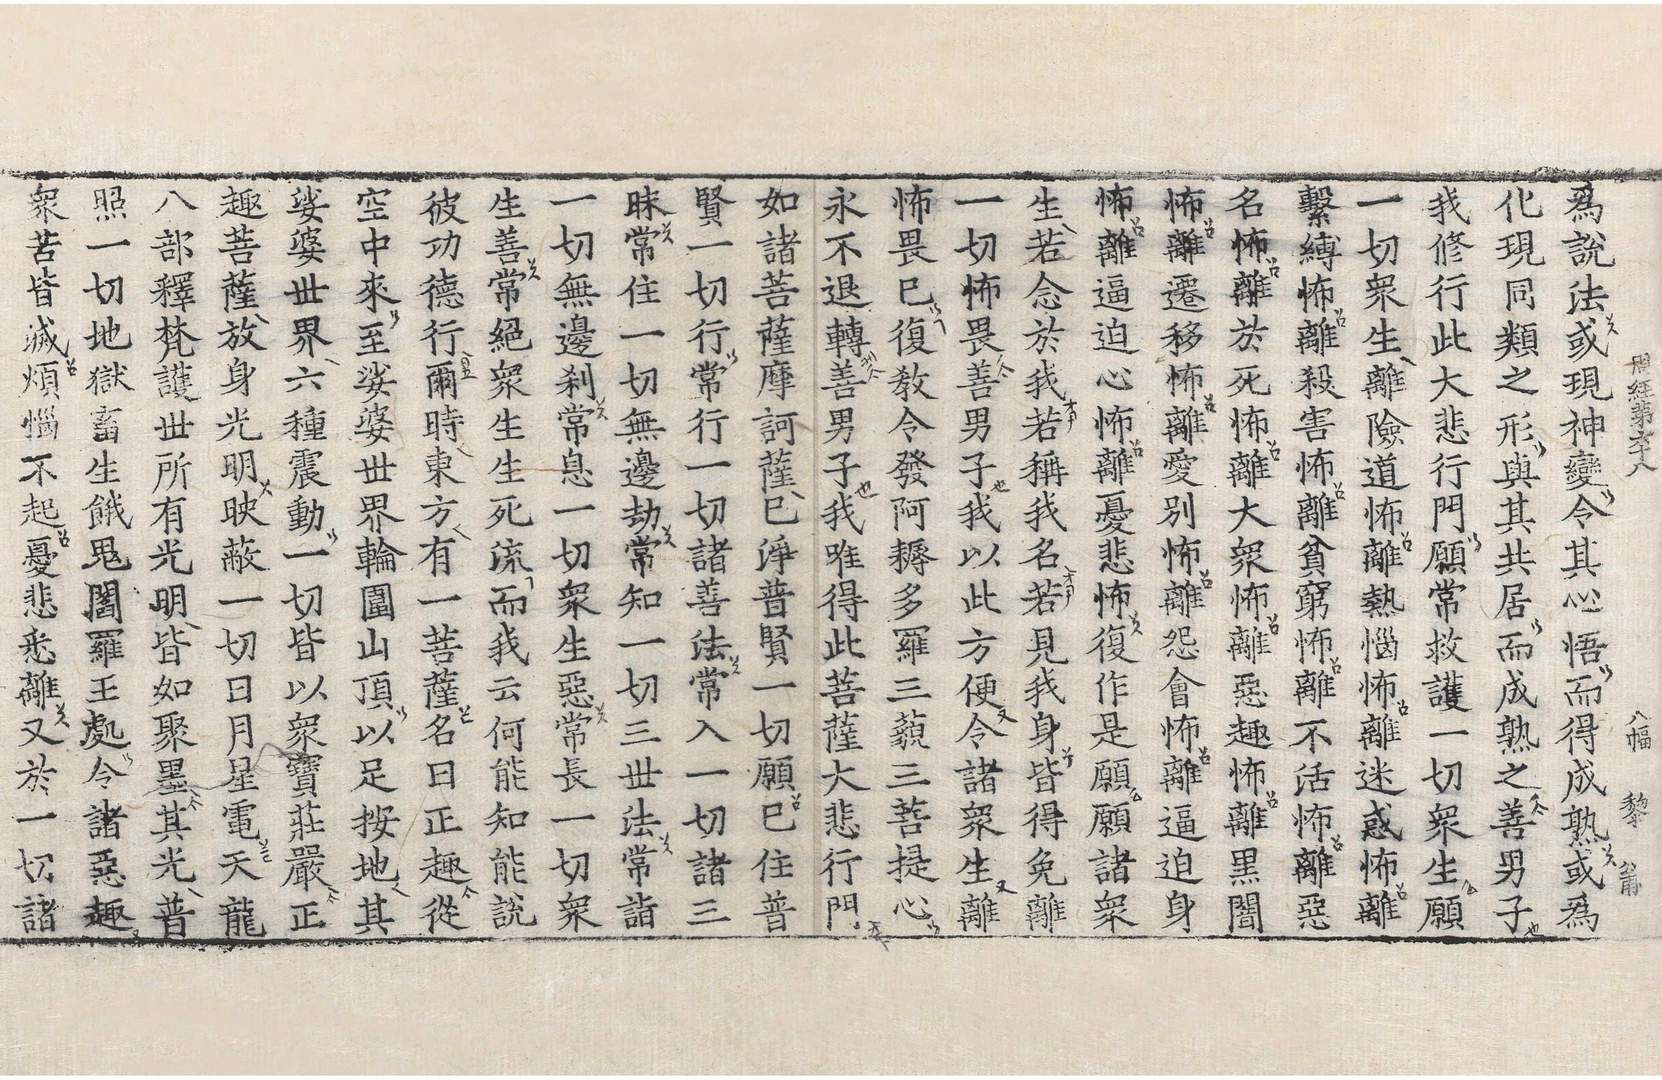 周經第六十八 八幅 黎
為說法或現神變令其心悟而得成熟或為
化現同類之形與其共居而成熟之善男子
我修行此大悲行門願常救護一切眾生願
一切眾生離險道怖離熱惱怖離迷惑怖離
繫縛怖離殺害怖離貧窮怖離不活怖離惡
名怖離於死怖離大眾怖離惡趣怖離黑闇
怖離遷移怖離愛別怖離怨會怖離逼迫身
怖離逼迫心怖離憂悲怖復作是願願諸眾
生若念於我若稱我名若見我身皆得免離
一切怖畏善男子我以此方便令諸眾生離
怖畏已復教令發阿耨多羅三藐三菩提心
永不退轉善男子我唯得此菩薩大悲行門
如諸菩薩摩訶薩已淨普賢一切願已住普
賢一切行常行一切諸善法常入一切諸三
昧常住一切無邊劫常知一切三世法常詣
一切無邊刹常息一切眾生惡常長一切眾
生善常絕眾生生死流而我云何能知能說
彼功德行爾時東方有一菩薩名曰正趣從
空中來至娑婆世界輪圍山頂以足按地其
娑婆世界六種震動一切皆以眾寶莊嚴正
趣菩薩放身光明映蔽一切日月星電天龍
八部釋梵護世所有光明皆如聚墨其光普
照一切地獄畜生餓鬼閻羅王處令諸惡趣
眾苦皆滅煩惱不起憂悲悉離又於一切諸